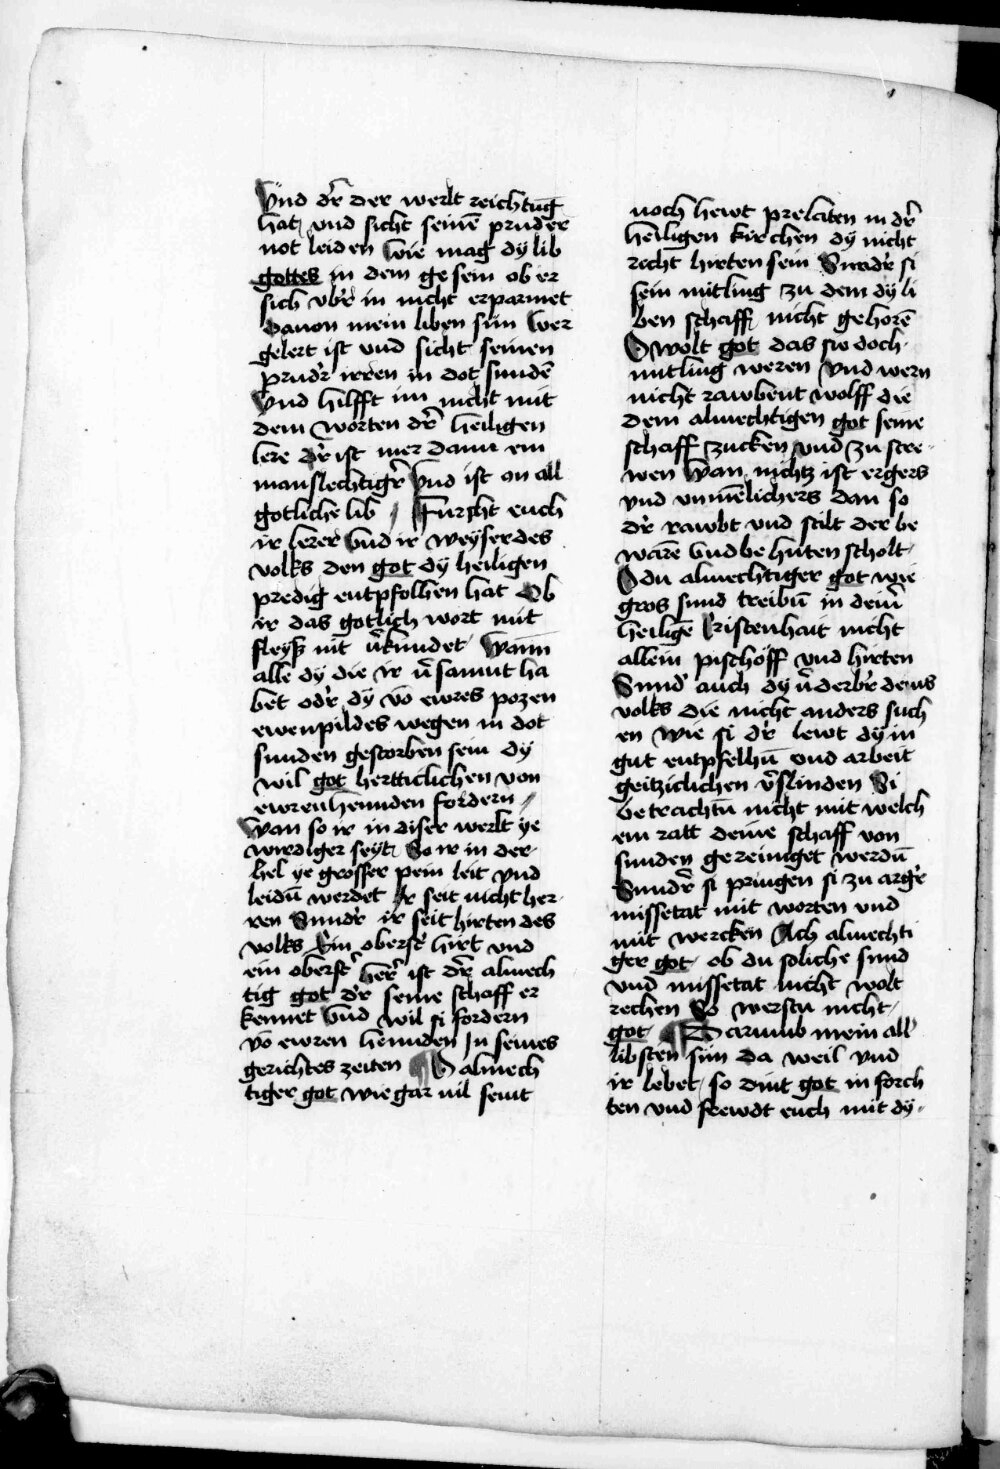 Vnd dr̄ der werlt reichtūg
hat, vnd sicht seinē pruder
not leiden Wie mag dy lib
gottes in dem gesein ob er
sich vbr̄ in nicht erparmet
Dauon mein liben sün Wer
gelert ist vnd sicht seinen
prudr̄ irren in dot sundē
Vnd hilfft im nicht mit
dem worten dr̄ heiligen
lere dr̄ ist mer dann ein
manslechtigr̄ Vnd ist an all
gotliche lib / Furcht euch
ir lerer Vnd ir weyser des
volks den got dy heiligen
predig entpfolhen hat Ob
ir das gotlich wort mit
fleyß nit v̄kundet Wann
alle dy die ir v̄samnt ha
bet odr̄ dy vō ewres pozen
ewenpildes wegen in dot
sunden gestorben sein dy
wil got hertticlichen von
ewren hennden fordern /
Wan so ir in diser werlt ye
wirdiger seyt, So ir in der
hel ye grosser pein leit vnd
leidū werdet Ir seit nicht her
ren Sundr̄ ir seit hirten des
volks Ein oberstr̄ hirt vnd
ein oberstr̄ herr̄ ist dr̄ almech
tig got dr̄ seine schaff er
kennet Vnd wil si fordern
vō ewren hennden In seines
gerichtes zeiten ¶ O almech
tiger got wie gar vil seint
noch hewt prelaten in dr̄
heiligen kirchen dy nicht
recht hirten sein Sundr̄ si
sein mitling zu dem dy li
ben schaff, nicht gehorē
O wolt got das sie doch
mitling weren Vnd wern
nicht rawbent wolff die
dem almechtigen got seine
schaff zucken vnd zu stre
wen Wan nichtz ist ergers
vnd vnmēlichers dan so
dr̄ rawbt vnd stilt der be
warē Vnd behuten scholt
O du almechtiger got wie
gros sund treibū in deinr̄
heiligē Cristenhait nicht
allein pischoff vnd hirten
Sund̄ auch dy v̄derbr̄ deins
volks die nicht anders such
en wie si dr̄ lewt dy in
gut entpfelhū vnd arbeit
geitziclichen v̄slinden Si
betrachtū nicht mit welch
em ratt deine schaff von
sunden gereiniget werdū
Sundr̄ si pringen si zu argr̄
missetat mit worten vnd
mit wercken Ach almechti
ger got, ob du soliche sund
vnd missetat nicht wolt
rechen So werstu nicht,
got, ¶ Darumb mein all
libsten sün da weil vnd
ir lebet, so dint got in forch
ten vnd frewdt euch mit dy